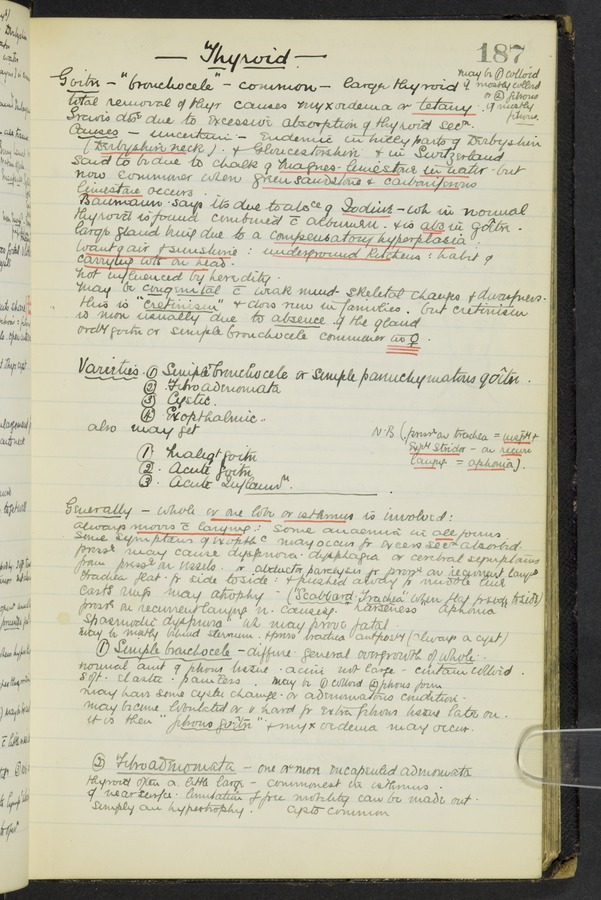 — Thyroid —
187
may be ① colloid
mostly colloid
or ② fibrous
mostly
fibrous.
Goitre - "bronchocele" - common - large thyroid
total removal of thyr causes myxoedema or tetany.
due to excessive absorption of thyroid secn.
Causes - uncertain - Endemic in hilly parts of Derbyshire
(Derbyshire neck). & Gloucestershire & in Switzerland
Said to be due to chalk or magnes. limestone in water - but
now commoner when green sandstone & carboniferous
limestone occurs.
Baumann says its due to absce of Iodine - wh in normal
thyroid is found combined c̄ albumen. & is abs in goitre.
large gland being due to a compensatory hyperplasia.
Want of air & sunshine: underground kitchens: habit of
carrying wts on head.
not influenced by heredity.
may be congenital c̄ weak mind - skeletal changes & dwarfness.
this is "cretinism" & does run in families. but cretinism
is more usually due to absence of the gland
ordy goitre or simple bronchocele commoner in ♀.
Varieties. ① Simple bronchocele or simple parenchymatous goitre.
② Fibroadenomata
③ Cystic.
④ Exopthalmic.
also may get
N.B (pressr on trachea =
Stridor - on recurr
laryng = aphonia).
1. Maligt goitre
2. Acute goitre
3. Acute Inflammn.
Generally - whole or one lobe or isthmus is involved:
always moves c̄ larynx: some anaemia in all forms.
some symptoms of exopthc may occur fr excess secn absorbd.
pressr may cause dyspnoea - dysphagia or cerebral symptoms
from pressr on vessels. or abductor paralysis fr pressr on recurrent laryngl
trachea flat fr side to side: & pushed away fr middle line
cart rings may atrophy - ("Scabbard Trachea" when flat fr side to side)
pressr on recurrent laryng n. causing "hoarseness aphonia
spasmodic dyspnoea" wh may prove fatal.
may be mostly behind sternum. & press trachea (always a cyst)
① Simple bronchocele - diffuse general overgrowth of whole.
normal amt of fibrous tissue - acini not large - contain colloid.
soft - elastic - painless. may be ① colloid ② fibrous form
may have some cystic change or adenomatous condition.
may become lobulated or v hard fr extra fibrous tissue later on.
it is then "fibrous goitre" & myxoedema may occur.
② Fibroadenomata - one or more encapsuled adenomata
thyroid often a little large - commonest in isthmus.
if near surface: limitation of free mobility can be made out.
simply an hypertrophy. cysts common